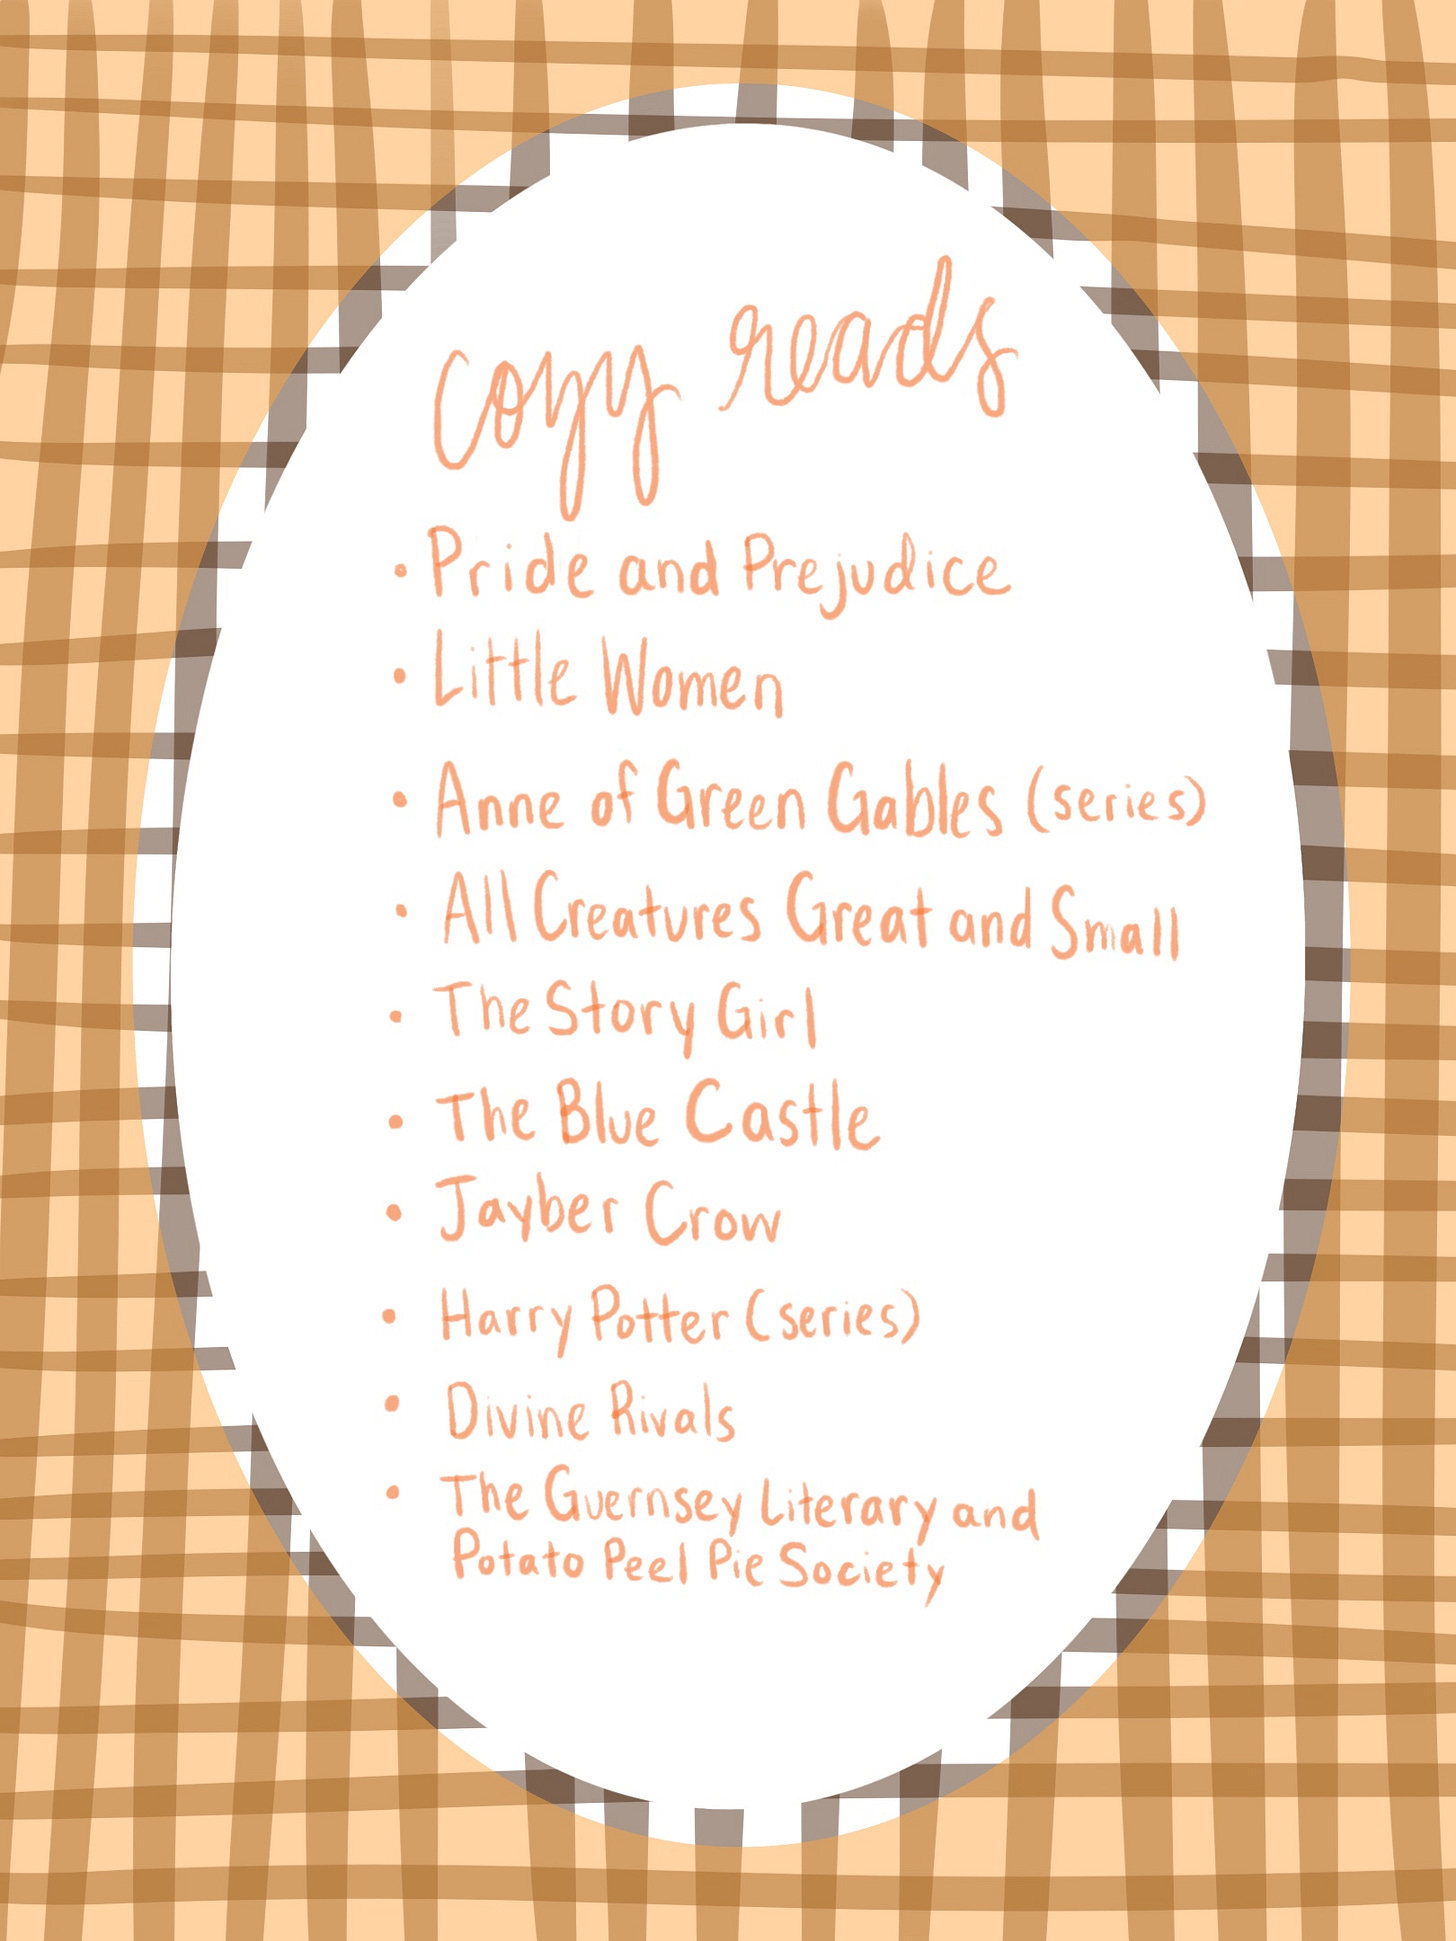 cozy reads
• Pride and Prejudice
• Little Women
• Anne of Green Gables (series)
• All Creatures Great and Small
• The Story Girl
• The Blue Castle
• Jayber Crow
• Harry Potter (series)
• Divine Rivals
• The Guernsey Literary and
Potato Peel Pie Society